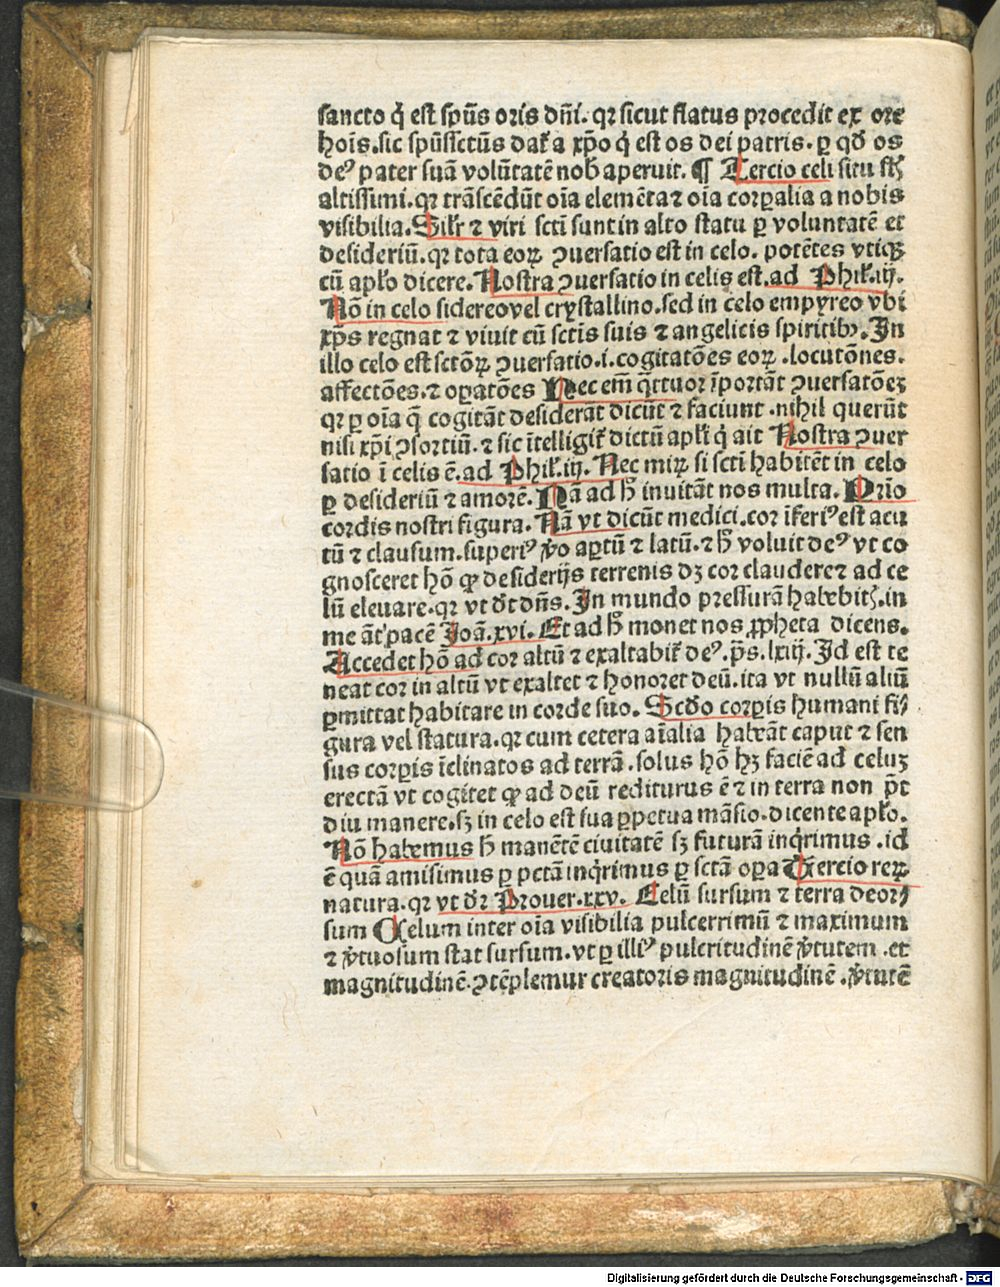 sancto q̇ est spūs oris dn̄i. qꝛ sicut flatus procedit ex ore
hoīs. sic spūsctūs dat̄ a xp̄o q̇ est os dei patris. ꝑ qđ os
deꝰ pater suā volūtatē nob̄ aperuit. ¶ Tercio celi situ st̄
altissimi. qꝛ trāscēdūt oīa elemēta ⁊ oīa corꝑalia a nobis
visibilia. Silr̄ ⁊ viri sct̄i sunt in alto statu ꝑ voluntatē et
desideriū. qꝛ tota eoꝝ ꝯuersatio est in celo. potētes vtiqꝫ
cū apl̄o dicere. Nostra ꝯuersatio in celis est. ad Phil̄. iij.
Nō in celo sidereo vel crystallino. sed in celo empyreo vbi
xp̄s regnat ⁊ viuit cū sctīs suis ⁊ angelicis spiritibꝰ. In
illo celo est sctōꝝ ꝯuersatio. i. cogitatōes eoꝝ . locutōnes.
affectōes. ⁊ oꝑatōes Nec em̄ q̄ttuor īportāt ꝯuersatōeꝫ
qꝛ ꝑ oīa q̄ cogitāt desiderāt dicūt ⁊ faciunt . nihil querūt
nisi xp̄i ꝯsortiū. ⁊ sic ītelligit̄ dictū apl̄i q̇ ait Nostra ꝯuer
satio ī celis ē. ad Phil̄. iij. Nec miꝝ si sct̄i habitēt in celo
ꝑ desideriū ⁊ amorē. Nā ad h̄ inuitāt nos multa. Prīo
cordis nostri figura. Nā vt dicūt medici. cor īferiꝰ est acu
tū ⁊ clausum. superiꝰ v̇o aꝑtū ⁊ latū. ⁊ h̄ voluit deꝰ vt co
gnosceret hō ꝙ desiderijs terrenis dꝫ cor claudere ⁊ ad ce
lū eleuare. qꝛ vt dīt dn̄s. In mundo pressurā habebitꝭ. in
me āt pacē Joā. xvi. Et ad h̄ monet nos ꝓpheta dicens.
Accedet hō ad cor altū ⁊ exaltabit̄ deꝰ. ps̄. lxiij. Id est te
neat cor in altū vt exaltet ⁊ honoret deū. ita vt nullū aliū
ꝑmittat habitare in corde suo. Scđo corꝑis humani fi
gura vel statura. qꝛ cum cetera aīalia habeāt caput ⁊ sen
sus corꝑis īclinatos ad terrā . solus hō hꝫ faciē ad celuꝫ
erectā vt cogitet ꝙ ad deū rediturus ē ⁊ in terra non p̄t
diu manere. sꝫ in celo est sua ꝑpetua māsio. dicente apl̄o.
Nō habemus h̄ manētē ciuitatē sꝫ futurā inq̇rimus . id
ē quā amisimus ꝑ pctā inq̇rimus ꝑ sctā oꝑa Tercio reꝝ
natura. qꝛ vt đr Prouer. xxv. Celū sursum ⁊ terra deorꝭ
sum Celum inter oīa visibilia pulcerrimū ⁊ maximum
⁊ v̇tuosum stat sursum. vt ꝑ illiꝰ pulcritudinē v̇tutem . et
magnitudinē. ꝯtēplemur creatoris magnitudinē . v̇tutē
Digitalisierung gefördert durch die Deutsche Forschungsgemeinschaft - DFG